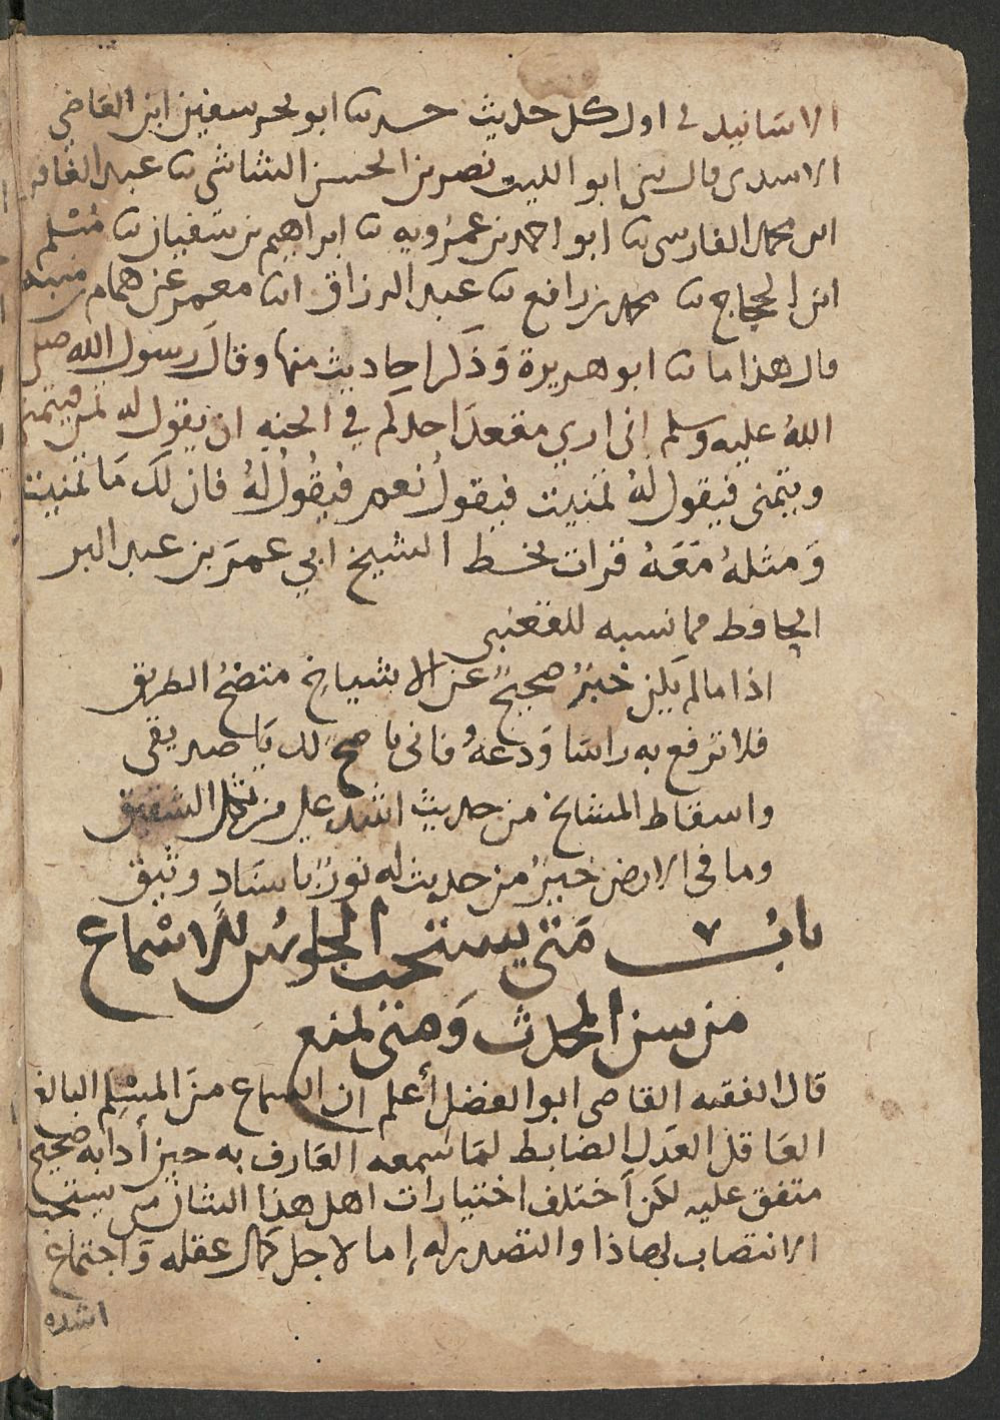 الاسانيد في اول كل حديث حدثنا ابو بحر سفين ابن القاضي
الاسدي قال ثني ابو الليث نصر بن الحسن الشاشي نا عبد الغافر
ابن محمد الفارسي نا ابو احمد بن عمرويه نا ابراهيم بن سفيان نا مسلم
ابن الحجاج نا محمد بن رافع نا عبد الرزاق انا معمر عن همام بن منبه
قال هذا ما نا ابو هريرة وذكر احاديث منها وقال رسول الله صلى
الله عليه وسلم ان ادني مقعد احدكم في الجنه ان يقول له تمن فيتمنى
ويتمنى فيقول له تمنيت فيقول نعم فيقول له فان لك ما تمنيت
ومثله معه قرات بخط الشيخ ابي عمر بن عبد البر
الحافظ مما نسبه للقعنبي
اذا ما لم يكن خبر صحيح عن الاشياخ متضح الطريق
فلا ترفع به راسا ودعه فاني ناصح لك يا صديقي
واسقاط المشايخ من حديث اشد علي من ثكل الشقيق
وما في الارض خير من حديث له نور باسناد وثيق
باب متى يستحب الجلوس للاسماع
من سن المحدث ومتى يمنع
قال الفقيه القاضي ابو الفضل أعلم ان السماع من المسلم البالغ
العاقل العدل الضابط لما سمعه العارف به حين أدابه صحيح
متفق عليه لكن أختلف اختيارات اهل هذا الشان متى يستحب
الانتصاب لهاذا والتصدر له إما لاجل كمال عقله واجتماع
اشده